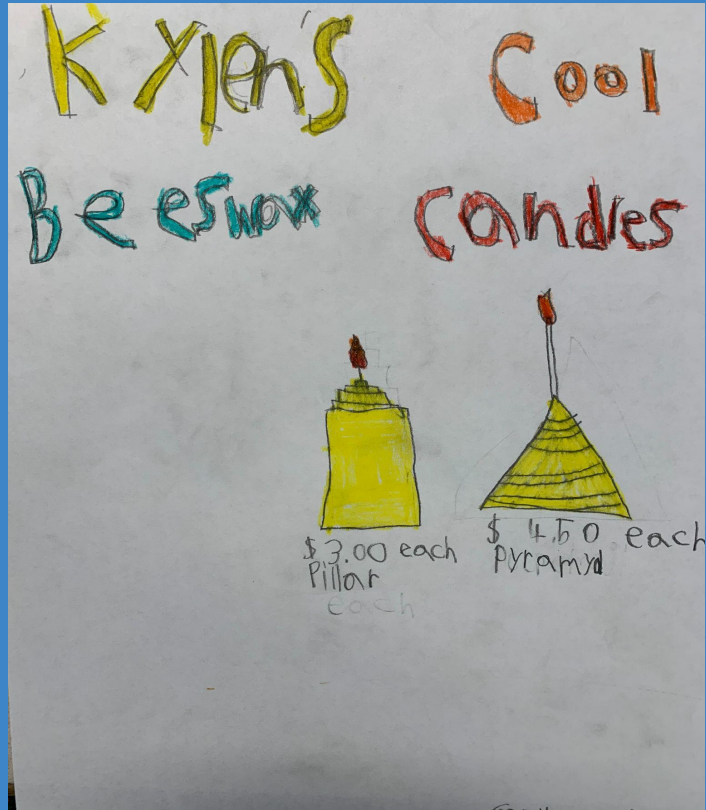 Kylen's Cool
Beeswax Candles
$3.00 each
Pillar
each
$ 4.50 each
Pyramyd